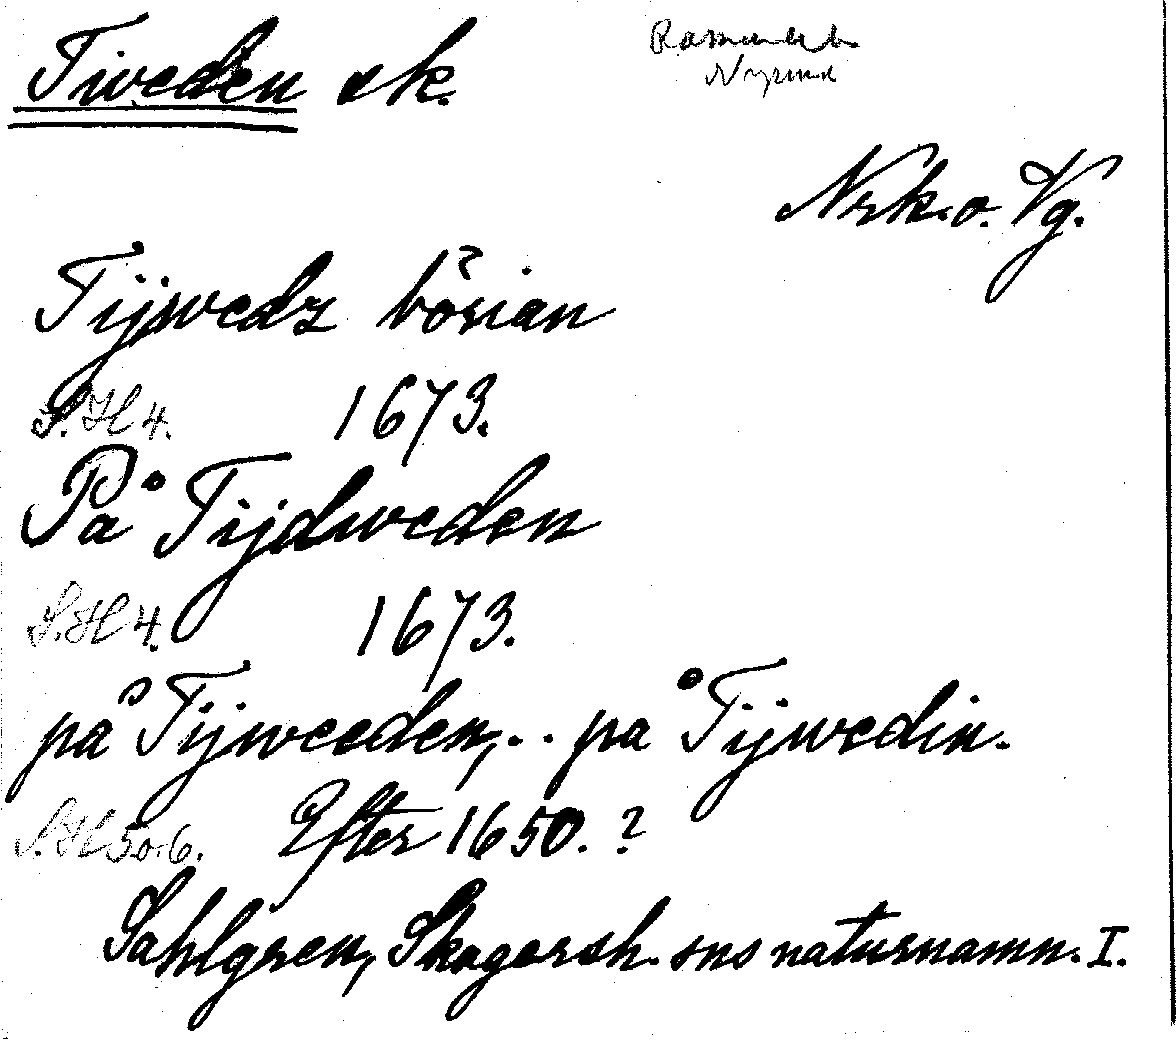 Tiweden sk.
Ramundeb.
Nysund
Nrk. o. Vg.
Tijwedz börian
S. H 4. 1673.
På Tijdweden
S. H 4. 1673.
på Tijweeden, .. på Tijwedin.
S. H 5 o. 6. Efter 1650. ?
Sahlgren, Skagersh. sns naturnamn. I.